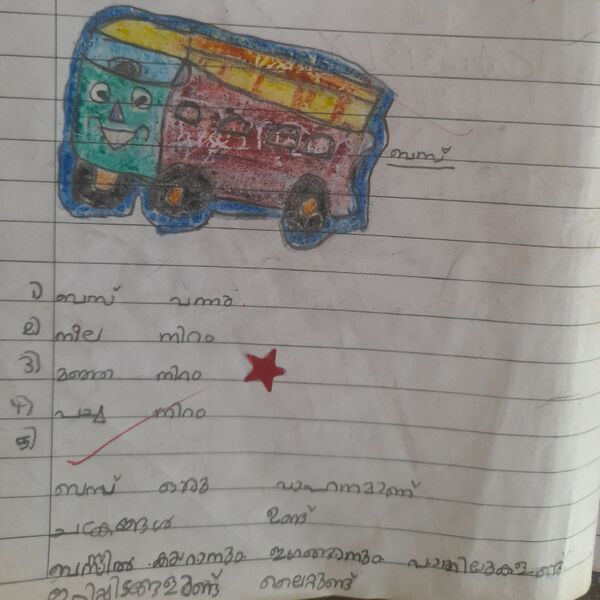 ബസ്
൧) ബസ് വന്നു.
൨) നീല നിറം
൩) മഞ്ഞ നിറം
൪) പച്ച നിറം
൫)
ബസ് ഒരു വാഹനമാണ്
ചക്രങ്ങൾ ഉണ്ട്
ബസ്സിൽ കയറാനും ഇറങ്ങാനും വാതിലുകളുണ്ട്
ഇരിപ്പിടങ്ങളുണ്ട് ലൈറ്റുണ്ട്